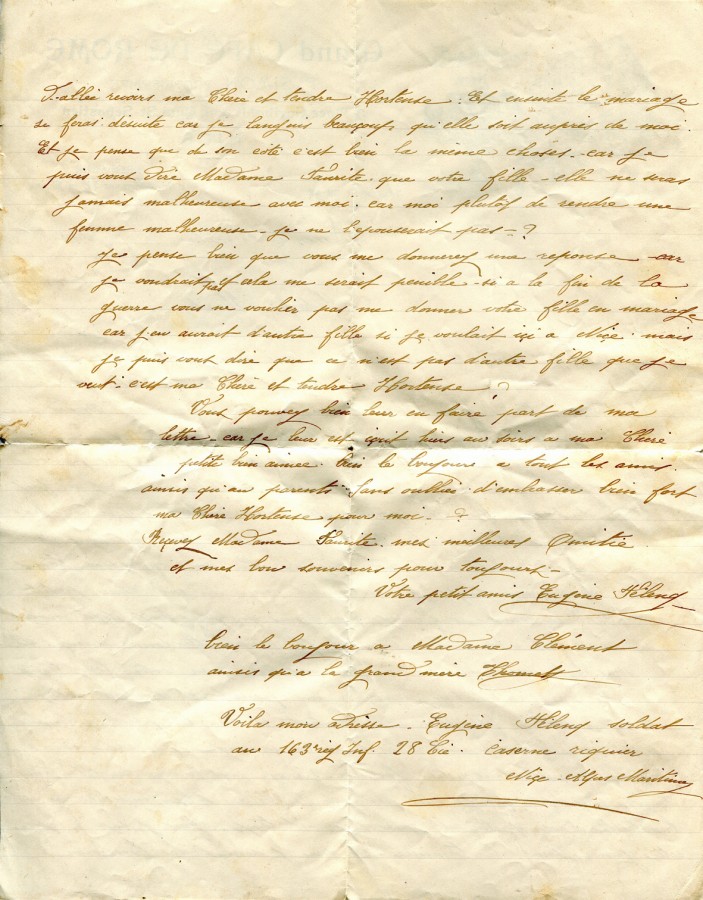 D'allée revoirs ma Chère et tendre Hortense. Et ensuite le mariage
se feras désuite car je languis beaucoup, qu'elle soit auprès de moi.
Et je pense que de son côté c'est bien la même choses. car je
puis vous dire Madame Faurite. que votre fille elle ne seras
jamais malheureuse avec moi. car moi plutôt de rendre une
femme malheureuse. je ne l'épouserait pas. ?
Je pense bien que vous me donnerez une reponse car
je voudrait pas et cela me serait penible si a la fin de la
guerre vous ne voulier pas me donner votre fille en mariage
car j'en aurait d'autre fille si je voulait içi a Niçe. mais
je puis vous dire que ce n'est pas d'autre fille que je
veut. c'est ma Chère et tendre Hortense ?
Vous pouvez bien leur en faire part de ma
lettre. car je leur est écrit hier au soirs a ma Chère
petite bien aimée. bien le bonjour a tout les amis.
ainsis qu'au parents. Sans oublier d'embrasser bien fort
ma Chère Hortense pour moi. ?
Reçevez Madame Faurite. mes meilleures Amitié
et mes bon souvenirs pour toujours.
Votre petit amis Eugène Féleng
bien le bonjour a Madame Clément
ainsis qu'a la grand'mère
Voila mon adresse. Eugène Féleng soldat
au 163 reg Inf. 28 Cie. caserne riquier
Niçe. Alpes Maritime